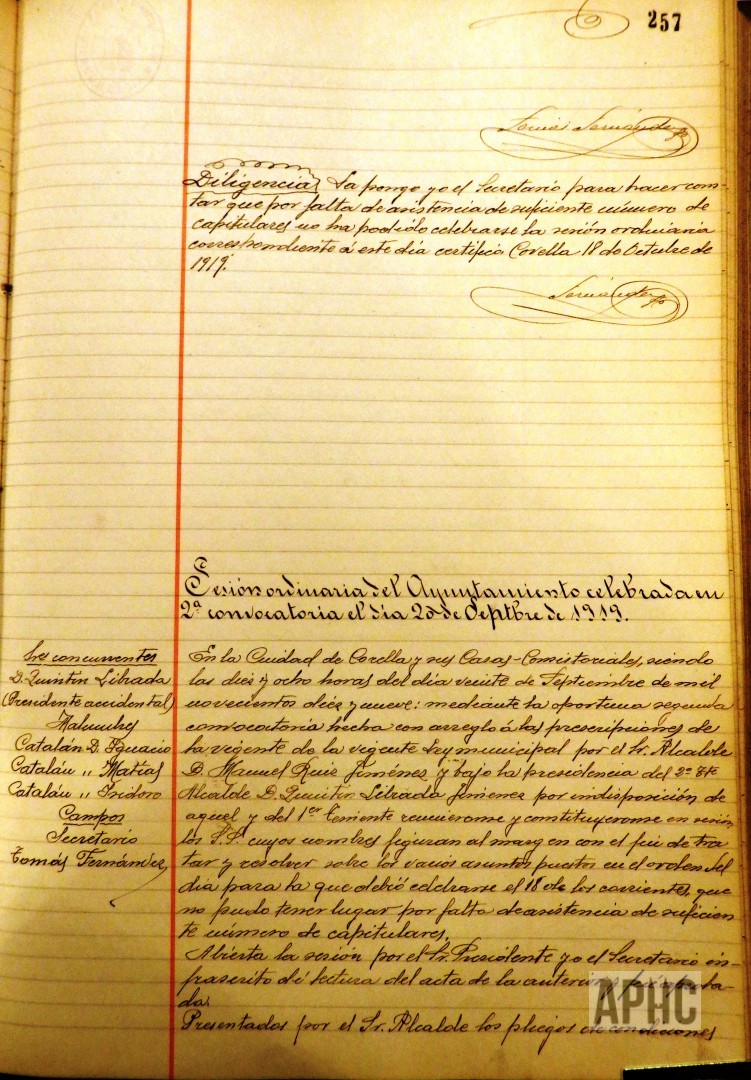 257
Tomás Fernández
Diligencia, La pongo yo el Secretario para hacer cons-
tar que por falta de asistencia de suficiente número de
capitulares no ha podido celebrarse la sesión ordinaria
correspondiente á este día certifico Corella 18 de Octubre de
1919.
Fernández
Sesión ordinaria del Ayuntamiento celebrada en
2ª convocatoria el día 20 de Septbre de 1919.
Sres concurrentes
D. Quintín Librada
(Presidente accidental)
Catalán D. Ignacio
Catalán " Matías
Catalán " Isidoro
Campos
Secretario
Tomás Fernández
En la Ciudad de Corella y sus Casas-Comistoriales, siendo
las diez y ocho horas del día veinte de Septiembre de mil
novecientos diez y nueve: mediante la oportuna segunda
convocatoria hecha con arreglo á las prescripciones de
la vigente de la vigente ley municipal por el Sr. Alcalde
D. Manuel Ruiz Jiménez y bajo la presidencia del 2º Tte
Alcalde D. Quintín Librada Jimenez por indisposición de
aquel y del 1er Teniente reunieronse y constituyeronse en sesión
los S.S. cuyos nombres figuran al margen con el fin de tra-
tar y resolver sobre los varios asuntos puestos en el orden del
día para la que debió celebrarse el 18 de los corrientes, que
no pudo tener lugar por falta de asistencia de suficien
te número de capitulares.
Abierta la sesión por el Sr. Presidente yo el Secretario in-
frascrito dí lectura del acta de la anterior fué aproba-
da.
Presentados por el Sr. Alcalde los pliegos de condiciones
APHC